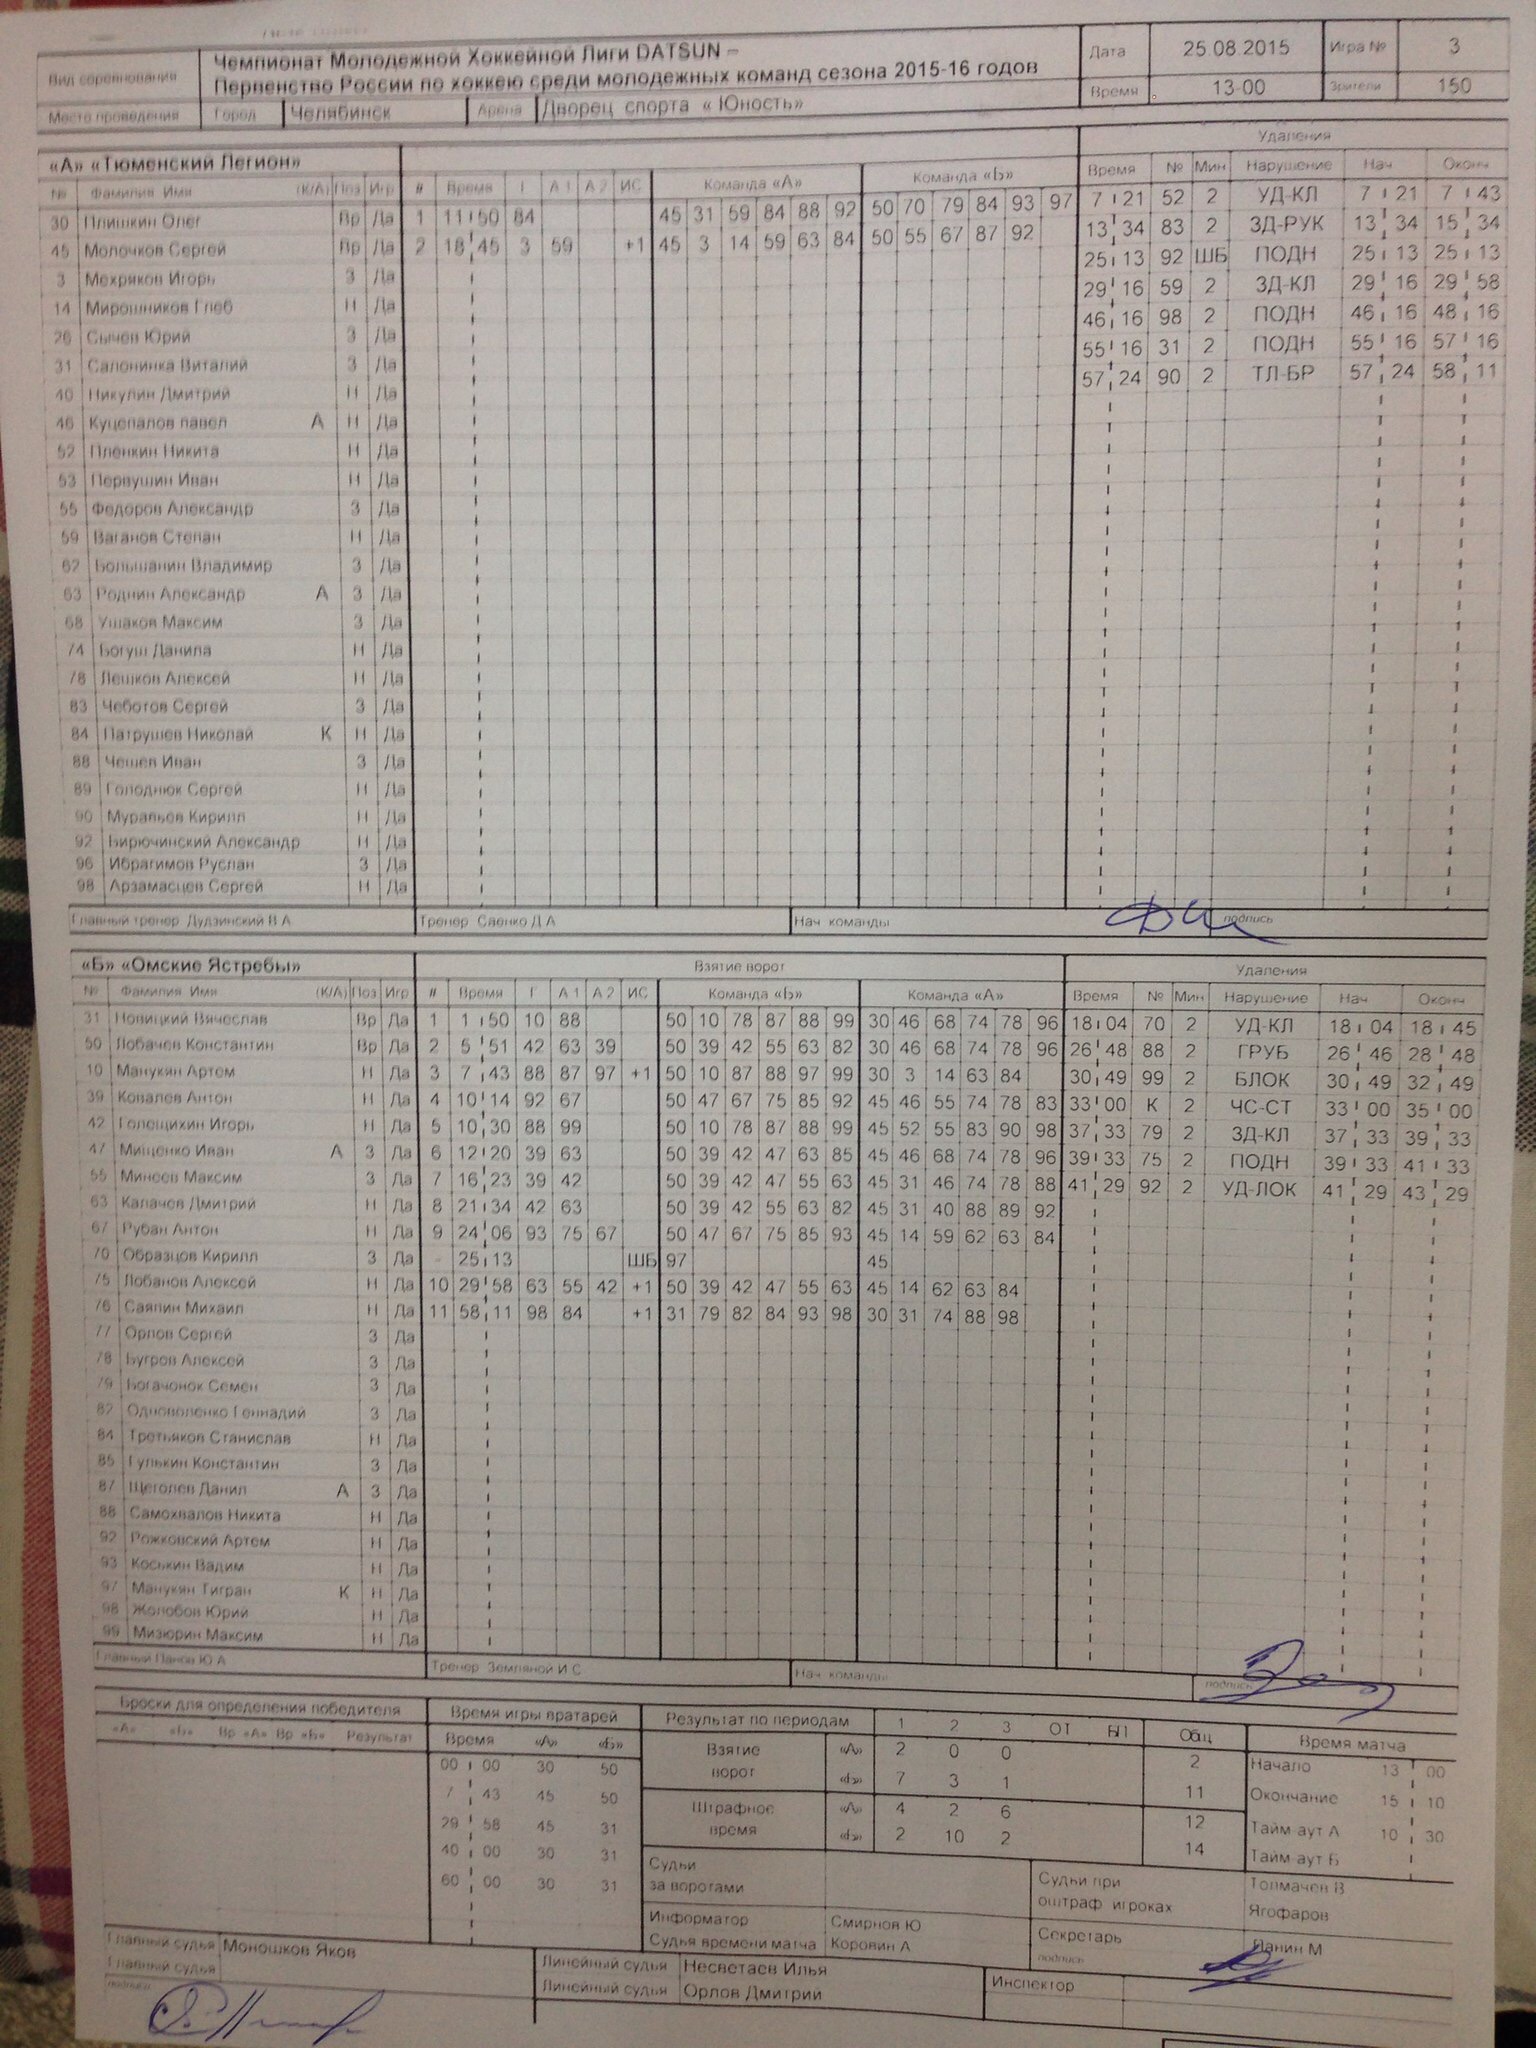 Вид соревнования Чемпионат Молодежной Хоккейной Лиги DATSUN – Дата 25.08.2015 Игра № 3
Первенство России по хоккею среди молодежных команд сезона 2015-16 годов Время 13-00 Зрители 150
Место проведения Город Челябинск Арена Дворец спорта « Юность»
Удаления
«А» «Тюменский Легион»
№ Фамилия Имя (К/А) Поз Игр # Время Г А 1 А 2 ИС Команда «А» Команда «Б» Время № Мин Нарушение Нач Оконч
30 Плишкин Олег Вр Да 1 11 50 84 45 31 59 84 88 92 50 70 79 84 93 97 7 21 52 2 УД-КЛ 7 21 7 43
45 Молочков Сергей Вр Да 2 18 45 3 59 +1 45 3 14 59 63 84 50 55 67 87 92 13 34 83 2 ЗД-РУК 13 34 15 34
3 Мехряков Игорь З Да 25 13 92 ШБ ПОДН 25 13 25 13
14 Мирошников Глеб Н Да 29 16 59 2 ЗД-КЛ 29 16 29 58
26 Сычев Юрий З Да 46 16 98 2 ПОДН 46 16 48 16
31 Салонинка Виталий З Да 55 16 31 2 ПОДН 55 16 57 16
40 Никулин Дмитрий Н Да 57 24 90 2 ТЛ-БР 57 24 58 11
46 Куцепалов павел А Н Да
52 Пленкин Никита Н Да
53 Первушин Иван Н Да
55 Федоров Александр З Да
59 Ваганов Степан Н Да
62 Большанин Владимир З Да
63 Роднин Александр А З Да
68 Ушаков Максим З Да
74 Богуш Данила Н Да
78 Лешков Алексей Н Да
83 Чеботов Сергей З Да
84 Патрушев Николай К Н Да
88 Чешев Иван З Да
89 Голоднюк Сергей Н Да
90 Муральов Кирилл Н Да
92 Бирючинский Александр Н Да
96 Ибрагимов Руслан З Да
98 Арзамасцев Сергей Н Да
Главный тренер Дудзинский В А Тренер Саенко Д А Нач команды подпись
«Б» «Омские Ястребы» Взятие ворот Удаления
№ Фамилия Имя (К/А) Поз Игр # Время Г А 1 А 2 ИС Команда «Б» Команда «А» Время № Мин Нарушение Нач Оконч
31 Новицкий Вячеслав Вр Да 1 1 50 10 88 50 10 78 87 88 99 30 46 68 74 78 96 18 04 70 2 УД-КЛ 18 04 18 45
50 Лобачев Константин Вр Да 2 5 51 42 63 39 50 39 42 55 63 82 30 46 68 74 78 96 26 48 88 2 ГРУБ 26 46 28 48
10 Манукян Артем Н Да 3 7 43 88 87 97 +1 50 10 87 88 97 99 30 3 14 63 84 30 49 99 2 БЛОК 30 49 32 49
39 Ковалев Антон Н Да 4 10 14 92 67 50 47 67 75 85 92 45 46 55 74 78 83 33 00 К 2 ЧС-СТ 33 00 35 00
42 Голещихин Игорь Н Да 5 10 30 88 99 50 10 78 87 88 99 45 52 55 83 90 98 37 33 79 2 ЗД-КЛ 37 33 39 33
47 Мищенко Иван А З Да 6 12 20 39 63 50 39 42 47 63 85 45 46 68 74 78 96 39 33 75 2 ПОДН 39 33 41 33
55 Минеев Максим З Да 7 16 23 39 42 50 39 42 47 55 63 45 31 46 74 78 88 41 29 92 2 УД-ЛОК 41 29 43 29
63 Калачев Дмитрий Н Да 8 21 34 42 63 50 39 42 55 63 82 45 31 40 88 89 92
67 Рубан Антон Н Да 9 24 06 93 75 67 50 47 67 75 85 93 45 14 59 62 63 84
70 Образцов Кирилл З Да - 25 13 ШБ 97 45
75 Лобанов Алексей Н Да 10 29 58 63 55 42 +1 50 39 42 47 55 63 45 14 62 63 84
76 Саяпин Михаил Н Да 11 58 11 98 84 +1 31 79 82 84 93 98 30 31 74 88 98
77 Орлов Сергей З Да
78 Бугров Алексей З Да
79 Богачонок Семен З Да
82 Одноволенко Геннадий З Да
84 Третьяков Станислав Н Да
85 Гулькин Константин З Да
87 Щеголев Данил А З Да
88 Самохвалов Никита Н Да
92 Рожковский Артем Н Да
93 Коськин Вадим Н Да
97 Манукян Тигран К Н Да
98 Жолобов Юрий Н Да
99 Мизюрин Максим Н Да
Главный Панов Ю А Тренер Земляной И С Нач команды подпись
Броски для определения победителя Время игры вратарей Результат по периодам 1 2 3 ОТ БП Общ Время матча
«А» «Б» Вр «А» Вр «Б» Результат Время «А» «Б»
00 00 30 50 Взятие ворот «А» 2 0 0 2 Начало 13 00
7 43 45 50 «Б» 7 3 1 11 Окончание 15 10
29 58 45 31 Штрафное время «А» 4 2 6 12 Тайм аут А 10 30
40 00 30 31 «Б» 2 10 2 14 Тайм аут Б
60 00 30 31 Судьи за воротами Судьи при оштраф игроках Толмачев В
Ягофаров
Информатор Смирнов Ю Секретарь Панин М
Судья времени матча Коровин А подпись
Главный судья Моношков Яков Линейный судья Несветаев Илья Инспектор
Главный судья Линейный судья Орлов Дмитрий
подпись